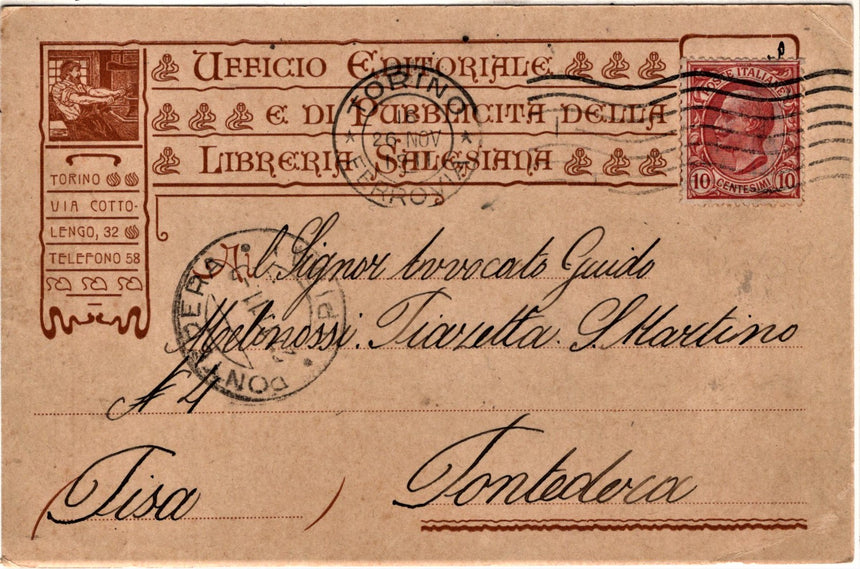 UFFICIO EDITORIALE
E DI PUBBLICITÀ DELLA
LIBRERIA SALESIANA
TORINO
VIA COTTO-
LENGO, 32
TELEFONO 58
TORINO
26 NOV
FERROVIA
POSTE ITALIANE
10 CENTESIMI 10
PONTEDERA
Al Signor Avvocato Guido
Piazzetta S. Martino
N 4
(Pisa) Pontedera